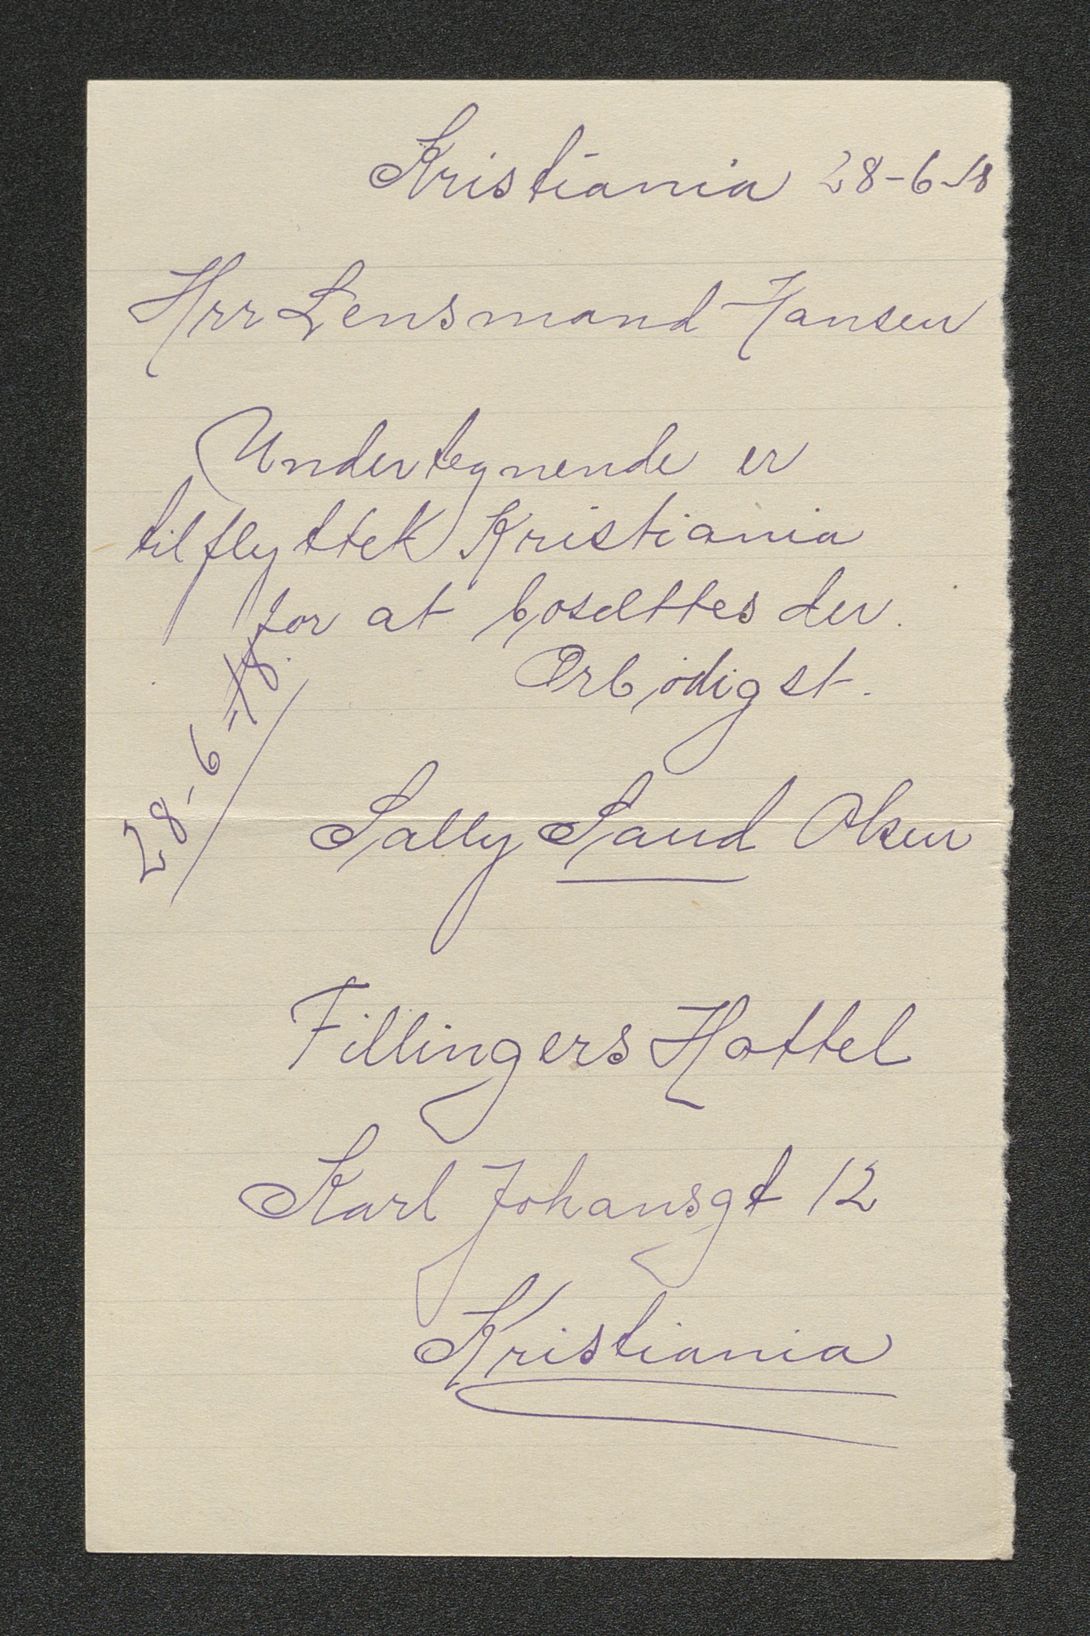 Kristiania 28-6-18
Hrr Lensmand Hansen
Undertegnende er
tilflyttet Kristiania
for at bosættes der.
Ærbødigst.
28-6-18.
Sally Sand Olsen
Fillingers Hottel
Karl Johansgt 12
Kristiania